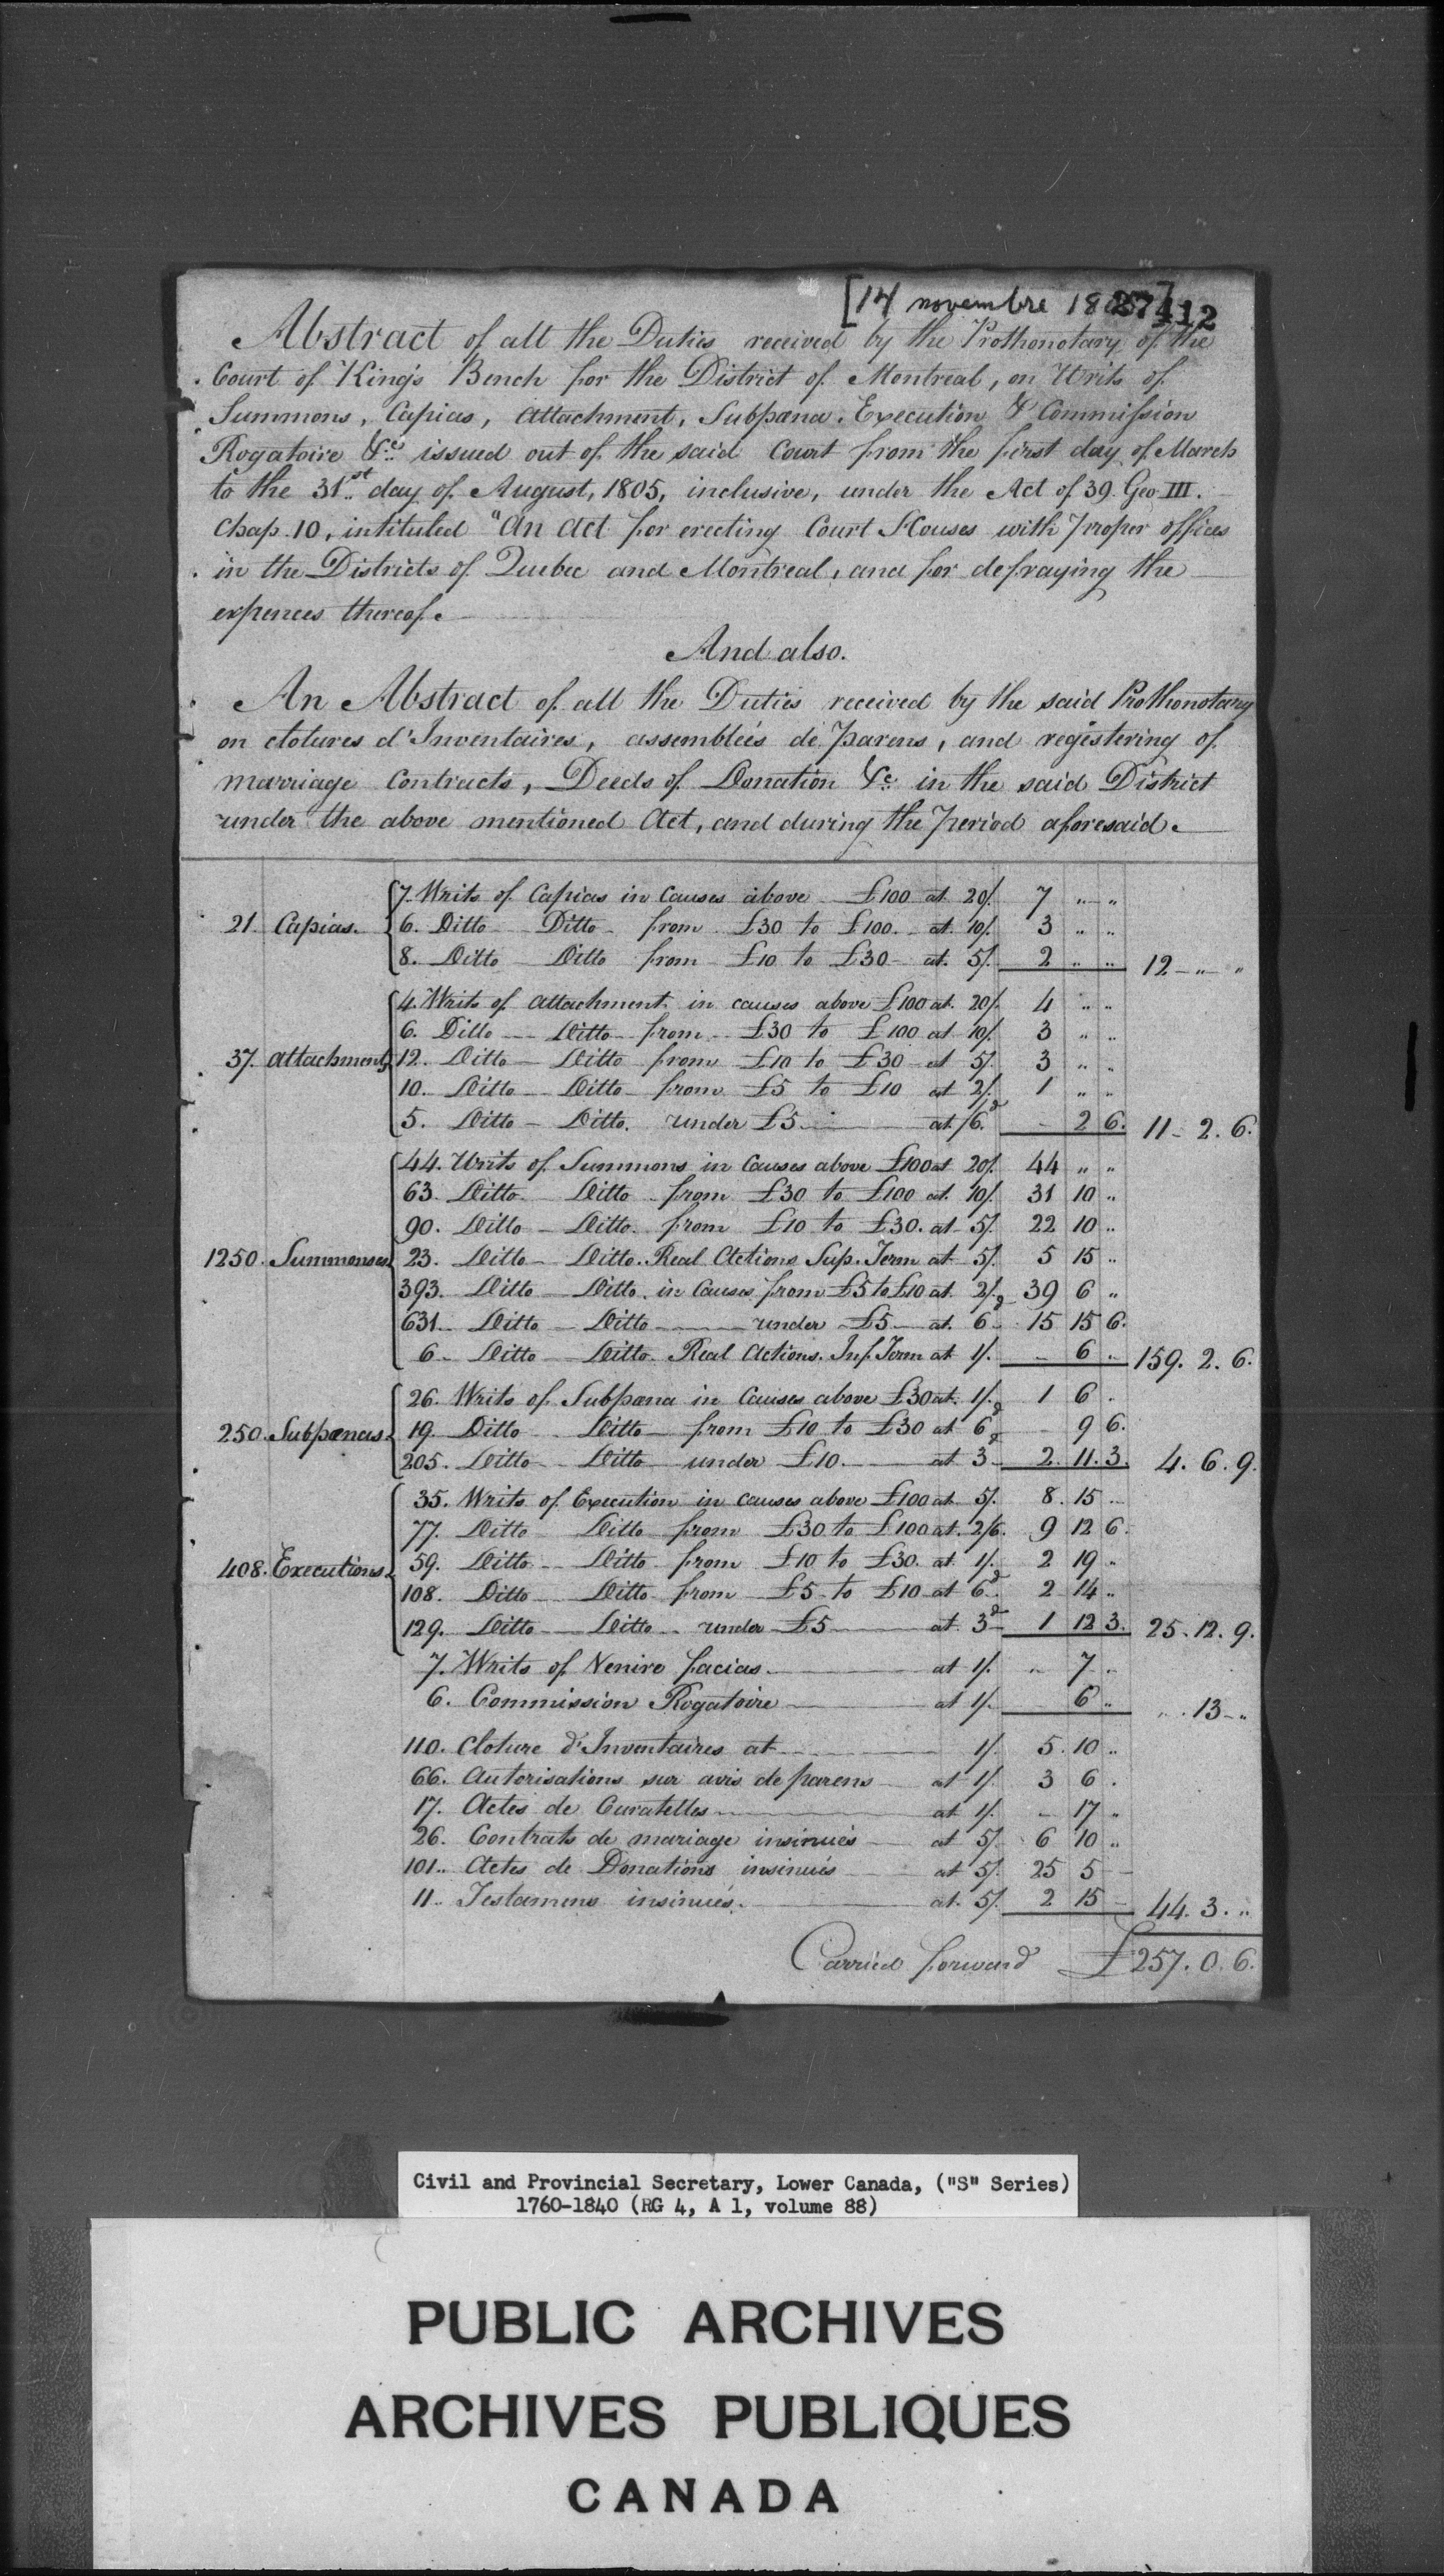 [14 novembre 1805]
27412
Abstract of all the Duties received by the Prothonotary of the
Court of King's Bench for the District of Montreal, on Writs of
Summons, Capias, Attachment, Subpœna, Execution & Commission
Rogatoire &c. issued out of the said Court from the first day of March
to the 31st day of August, 1805, inclusive, under the Act of 39. Geo III.
Chap. 10, intituled "An Act for erecting Court Houses with proper offices
in the Districts of Quebec and Montreal, and for defraying the
expences thereof.
And also.
An Abstract of all the Duties received by the said Prothonotary
on clotures d'Inventaires, assembleés de parens, and registering of
marriage Contracts, Deeds of Donation &c. in the said District
under the above mentioned Act, and during the Period aforesaid.
7. Writs of Capias in Causes above £100 at 20/. 7 " "
21. Capias. 6. Ditto Ditto from £30 to £100. at 10/. 3 " "
8. Ditto Ditto from £10 to £30 at 5/. 2 " " 12 " "
4. Writs of attachment in causes above £100 at 20/. 4 " "
6. Ditto Ditto from £30 to £100 at 10/. 3 " "
37. Attachments 12. Ditto Ditto from £10 to £30 at 5/. 3 " "
10. Ditto Ditto from £5 to £10 at 2/. 1 " "
5. Ditto Ditto. under £5 at /6.d - 2 6. 11 - 2. 6.
44. Writs of Summons in Causes above £100 at 20/. 44 " "
63. Ditto Ditto from £30 to £100 at 10/. 31 10 "
90. Ditto Ditto. from £10 to £30. at 5/. 22 10 "
1250. Summonses 23. Ditto Ditto. Real Actions Sup. Term at 5/. 5 15 "
393. Ditto Ditto. in Causes from £5 to £10 at 2/. 39 6 "
631. Ditto Ditto under £5 at 6d 15 15 6.
6 Ditto Ditto. Real Actions. Inf. Term at 1/. - 6 " 159. 2. 6.
26. Writs of Subpœna in Causes above £30 at 1/. 1 6 .
250. Subpœnas 19. Ditto Ditto from £10 to £30 at 6d - 9 6.
205. Ditto Ditto under £10. at 3d 2. 11. 3. 4. 6. 9.
35. Writs of Execution in causes above £100 at 5/. 8. 15 "
77. Ditto Ditto from £30 to £100 at. 2/6. 9 12 6.
408. Executions 59. Ditto Ditto from £10 to £30. at 1/. 2 19 "
108. Ditto Ditto from £5 to £10 at 6d. 2 14 "
129. Ditto Ditto under £5 at 3d 1 12 3. 25. 12. 9.
7. Writs of Venire facias. at 1/. " 7 "
6. Commission Rogatoire at 1/. 6 " " 13 "
110. Cloture d'Inventaires at 1/. 5. 10 "
66. Autorisations sur avis de parens at 1/. 3 6 .
17. Actes de Curatelles at 1/. - 17 "
26. Contrats de mariage insinués at 5/. 6 10 "
101. Actes de Donations insinués at 5/. 25 5 -
11. Testamens insinués. at. 5/. 2 15 - 44. 3. "
Carried forward £257. 0. 6.
Civil and Provincial Secretary, Lower Canada, ("S" Series)
1760-1840 (RG 4, A 1, volume 88)
PUBLIC ARCHIVES
ARCHIVES PUBLIQUES
CANADA